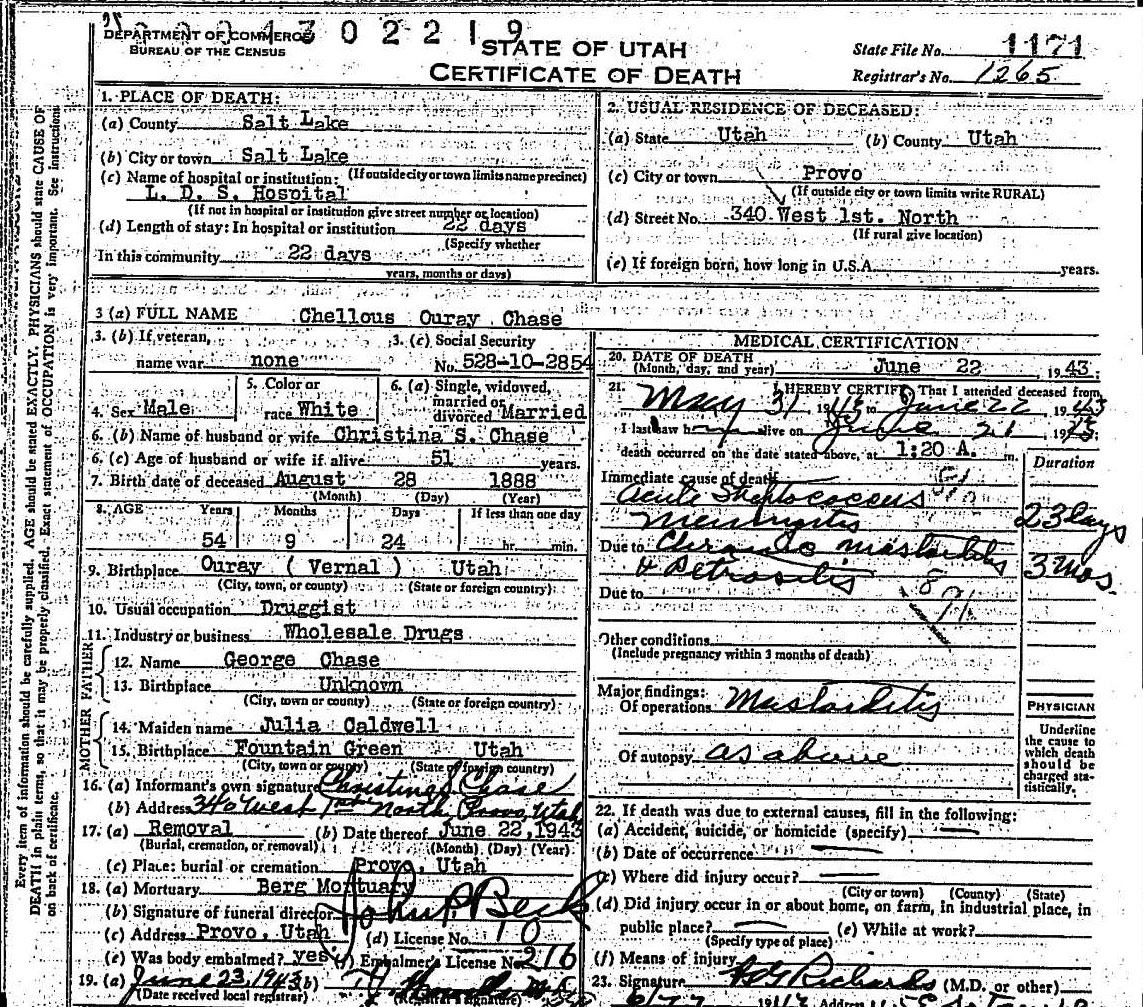 DEPARTMENT OF COMMERCE
BUREAU OF THE CENSUS
3 0 2 2 1 9
STATE OF UTAH
CERTIFICATE OF DEATH
State File No. 1171
Registrar's No. 1265
Every item of information should be carefully supplied. AGE should be stated EXACTLY. PHYSICIANS should state CAUSE OF
DEATH in plain terms, so that it may be properly classified. Exact statement of OCCUPATION is very important. See instructions
on back of certificate.
1. PLACE OF DEATH:
(a) County Salt Lake
(b) City or town Salt Lake
(If outside city or town limits name precinct)
(c) Name of hospital or institution:
L. D. S. Hospital
(If not in hospital or institution give street number or location)
(d) Length of stay: In hospital or institution 22 days
(Specify whether
In this community 22 days
years, months or days)
2. USUAL RESIDENCE OF DECEASED:
(a) State Utah (b) County Utah
(c) City or town Provo
(If outside city or town limits write RURAL)
(d) Street No. 340 West 1st. North
(If rural give location)
(e) If foreign born, how long in U.S.A. years.
3 (a) FULL NAME Chellous Ouray Chase
3. (b) If veteran, name war none
3. (c) Social Security No. 528-10-2854
4. Sex Male
5. Color or race White
6. (a) Single, widowed, married or divorced Married
6. (b) Name of husband or wife Christina S. Chase
6. (c) Age of husband or wife if alive 51 years.
7. Birth date of deceased August 28 1888
(Month) (Day) (Year)
8. AGE Years Months Days If less than one day
54 9 24 hr. min.
9. Birthplace Ouray ( Vernal ) Utah
(City, town, or county) (State or foreign country)
10. Usual occupation Druggist
11. Industry or business Wholesale Drugs
FATHER
12. Name George Chase
13. Birthplace Unknown
(City, town or county) (State or foreign country)
MOTHER
14. Maiden name Julia Caldwell
15. Birthplace Fountain Green Utah
(City, town or county) (State or foreign country)
16. (a) Informant's own signature Christina S Chase
(b) Address 340 West 1st North, Provo, Utah
17. (a) Removal (b) Date thereof June 22, 1943
(Burial, cremation, or removal) (Month) (Day) (Year)
(c) Place: burial or cremation Provo, Utah
18. (a) Mortuary Berg Mortuary
(b) Signature of funeral director John P Beck
(c) Address Provo, Utah (d) License No. 10
(e) Was body embalmed? yes (f) Embalmer's License No. 216
19. (a) June 23, 1943 (b)
(Date received local registrar) (Registrar's signature)
MEDICAL CERTIFICATION
20. DATE OF DEATH June 22, 1943;
(Month, day, and year)
21. I HEREBY CERTIFY That I attended deceased from
May 31 1943 to June 22 1943
I last saw him alive on June 21, 1943;
death occurred on the date stated above, at 1:20 A. m.
Duration
Immediate cause of death
Acute Streptococcus
Meningitis 23 days
Due to Chronic mastoiditis
& Petrositis 3 mos.
Due to
Other conditions
(Include pregnancy within 3 months of death)
Major findings:
Of operations Mastoiditis
Of autopsy as above
PHYSICIAN
Underline
the cause to
which death
should be
charged sta-
tistically.
22. If death was due to external causes, fill in the following:
(a) Accident, suicide, or homicide (specify)
(b) Date of occurrence
(c) Where did injury occur?
(City or town) (County) (State)
(d) Did injury occur in or about home, on farm, in industrial place, in
public place? (e) While at work?
(Specify type of place)
(f) Means of injury
23. Signature Richards (M.D. or other)
Address